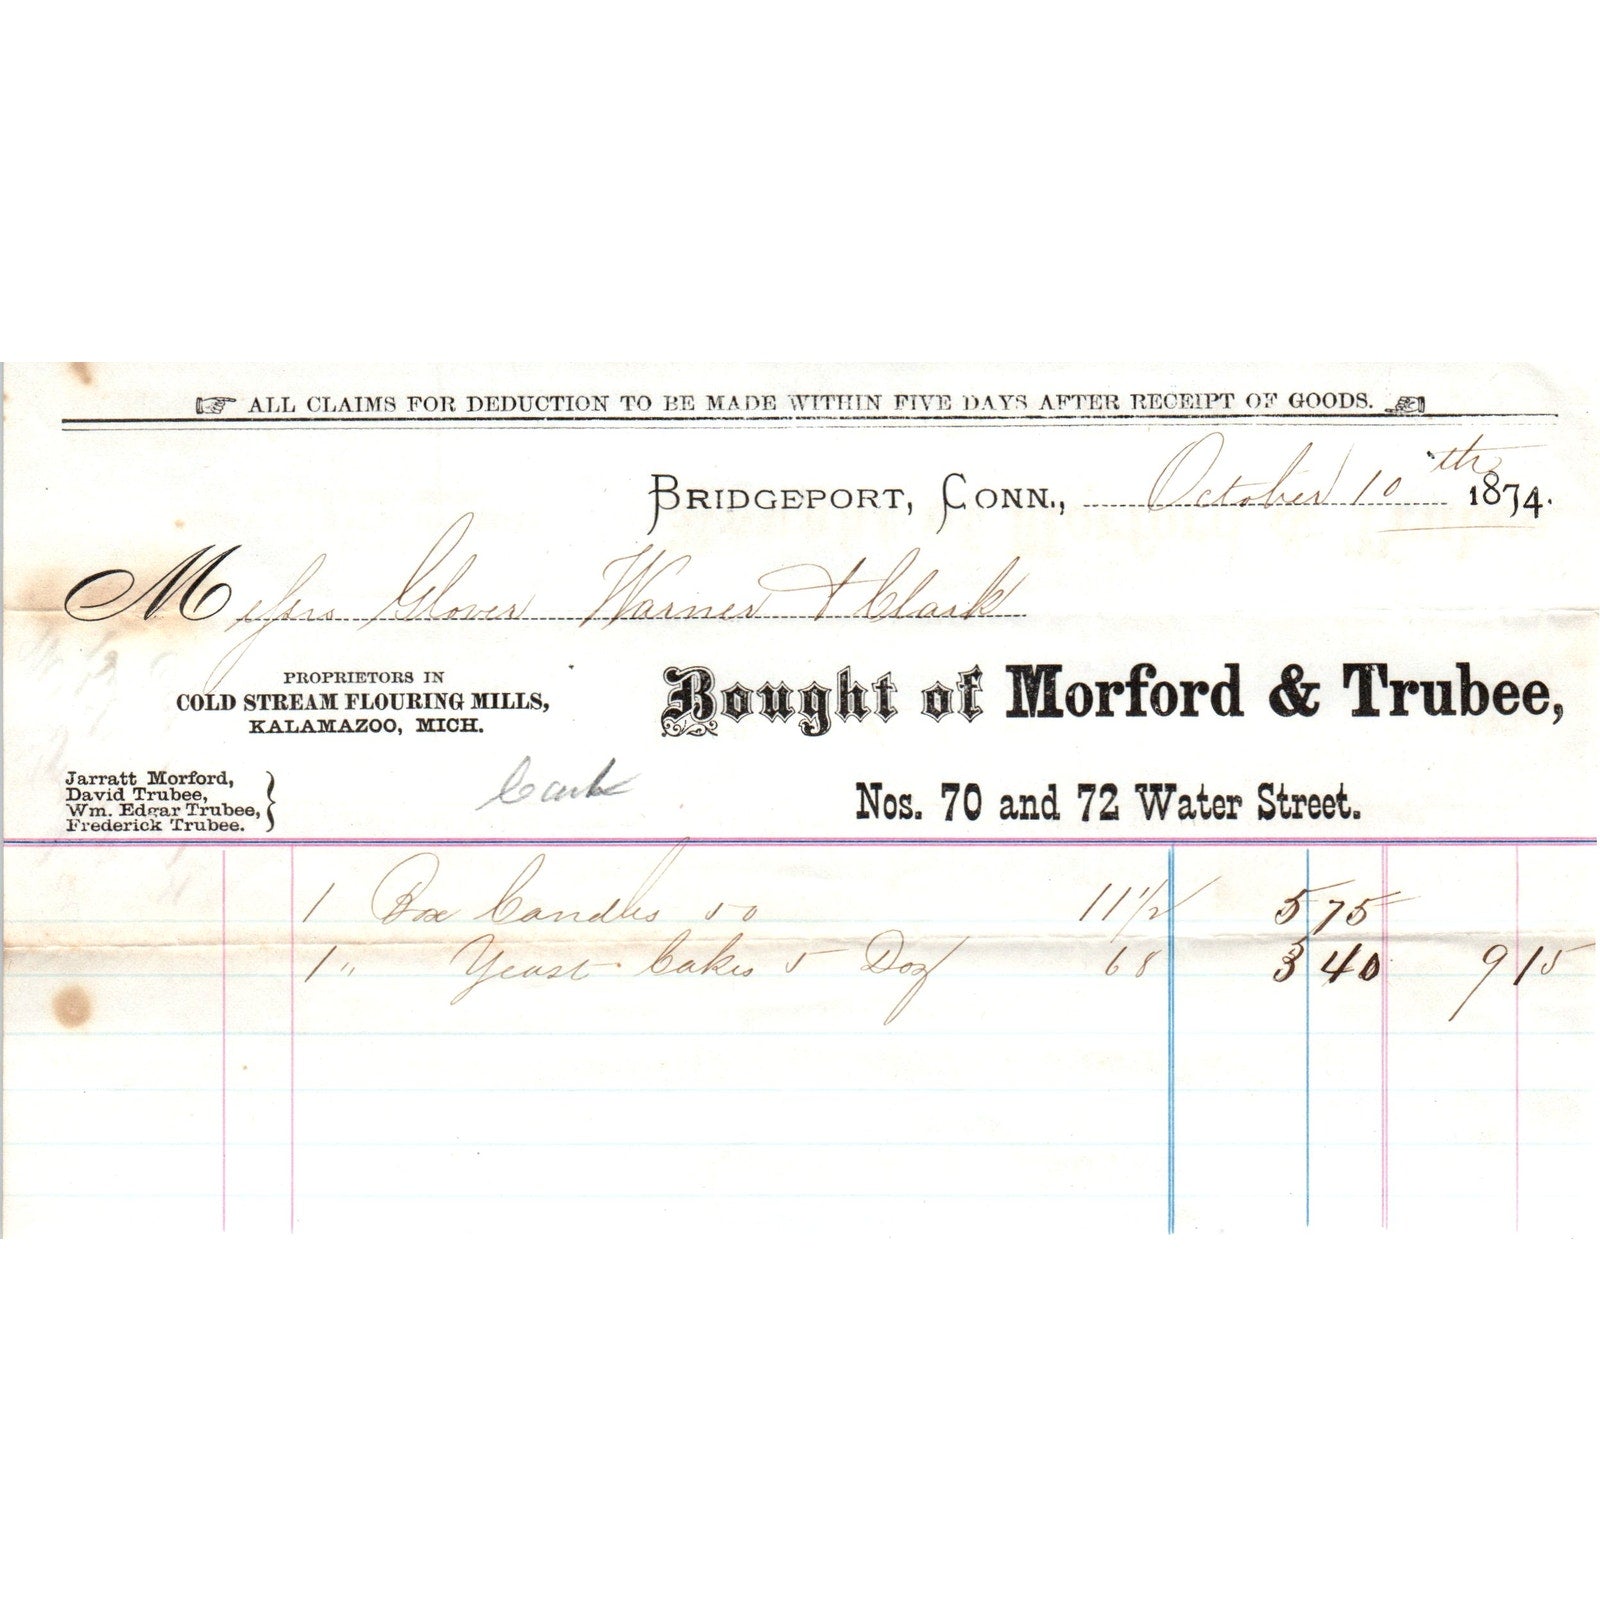 ☞ ALL CLAIMS FOR DEDUCTION TO BE MADE WITHIN FIVE DAYS AFTER RECEIPT OF GOODS. ☜
BRIDGEPORT, CONN., October 10th 1874.
Messrs Glover Warner & Clark
PROPRIETORS IN
COLD STREAM FLOURING MILLS,
KALAMAZOO, MICH.
Bought of Morford & Trubee,
Jarratt Morford,
David Trubee,
Wm. Edgar Trubee,
Frederick Trubee.
Nos. 70 and 72 Water Street.
1 Box Candles 50 11 1/2 5 75
1 " Yeast Cakes 5 Doz 68 3 40 9 15